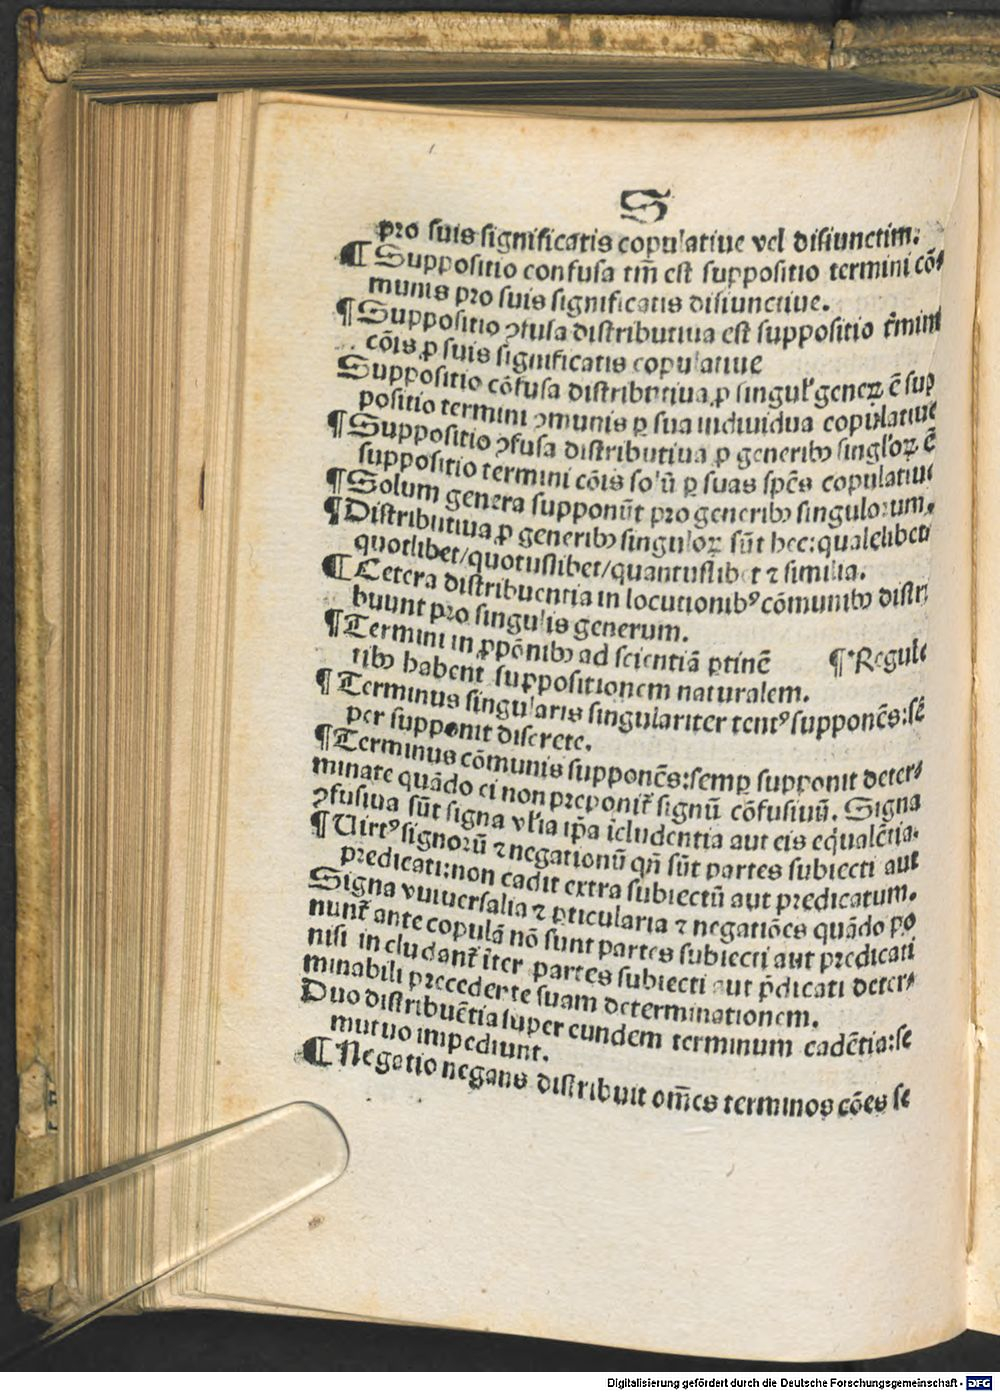 S
pro suis significatis copulatiue vel disiunctim.
¶ Suppositio confusa tm̄ est suppositio termini cō⸗
munis pro suis significatis disiunctiue.
¶ Suppositio ꝯfusa distributiua est suppositio t̄mini
cōis ꝓ suis significatis copulatiue
Suppositio cōfusa distributiua ꝓ singul' generꝝ ē sup
positio termini ꝯmunis ꝓ sua indiuidua copulatiue
¶ Suppositio ꝯfusa distributiua ꝓ generibꝫ singl'orꝝ ē
suppositio termini cōis solū ꝓ suas spēs copulatiue
¶ Solum genera supponūt pro generibꝫ singulorum.
¶ Distributiua ꝓ generibꝫ singulorꝝ sūt hec: qualelibet
quotlibet/quotuslibet/quantuslibet ⁊ similia.
¶ Cetera distribuentia in locutionibꝰ cōmunibꝫ distri
buunt pro singulis generum.
¶ Termini in ꝓpōnibꝫ ad scientiā ꝑtinē ¶ Regule
tibꝫ habent suppositionem naturalem.
¶ Terminus singularis singulariter tentꝰ supponēs: sē
per supponit discrete.
¶ Terminus cōmunis supponēs: semꝑ supponit deter⸗
minate quādo ei non preponit̄ signū cōfusiuū. Signa
ꝯfusiua sūt signa vl'ia ip̄a īcludentia aut eis eq̇ualētia.
¶ Uirtꝰ signorū ⁊ negationū qn̄ sūt partes subiecti aut
predicati: non cadit extra subiectū aut predicatum.
Signa vniuersalia ⁊ ꝑticularia ⁊ negatiōes quādo po
nunt̄ ante copulā nō sunt partes subiecti aut predicati
nisi includant̄ īter partes subiecti aut p̄dicati deter⸗
minabili precedente suam determinationem.
Duo distribuētia super eundem terminum cadētia: se
mutuo impediunt.
¶ Negatio negans distribuit om̄es terminos cōes se
Digitalisierung gefördert durch die Deutsche Forschungsgemeinschaft - DFG